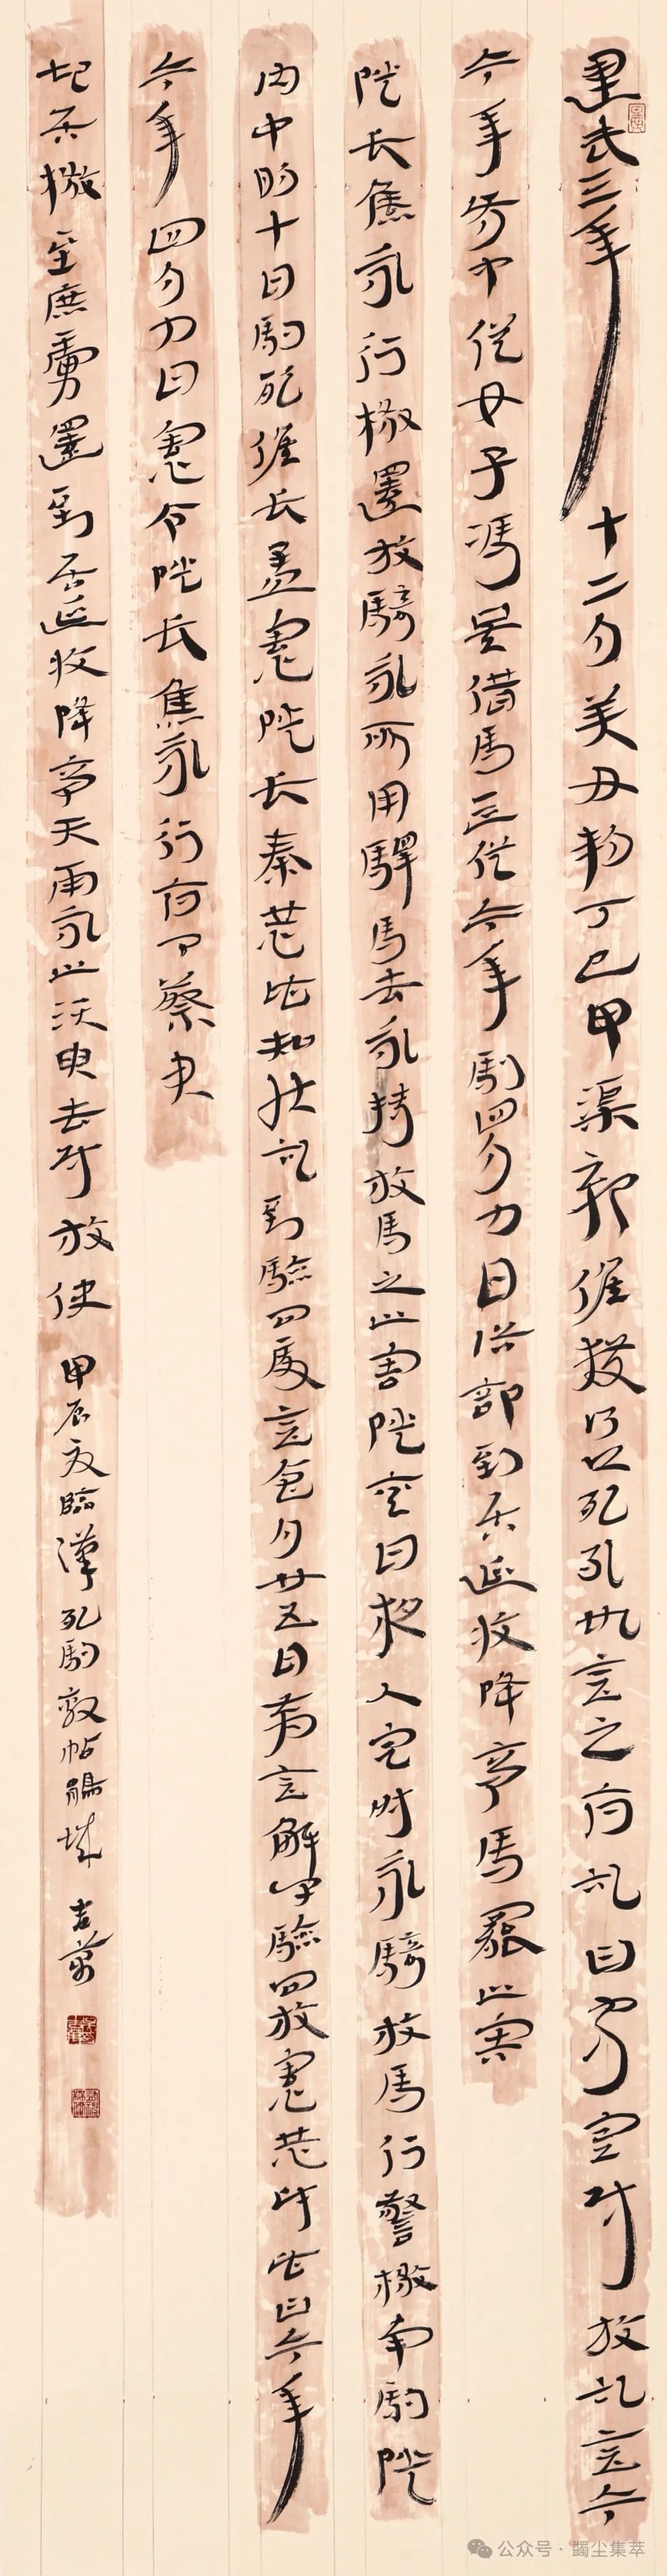 建武三年十二月癸丑朔丁巳甲渠鄣候獲叩頭死罪敢言之府記曰守塞尉放記言今
今年正月中從女子馮借馬一匹從今年駒四月九日詣部到居延收降亭馬罷止害
隧長焦永行檄還放騎永所用驛馬去永持放馬之止害隧其日夜人定時永騎放馬行警檄牢駒隧
內中明十日駒死候長孟憲隧長秦恭皆知狀記到驗問明處言會月廿五日前言解謹驗問放憲恭辭皆曰今年
今年四月九日憲令隧長焦永行府卿蔡君
起居檄至庶虜還到居延收降亭天雨永止須臾去尉放使 甲辰夏臨漢死駒
公众号·蠲尘集萃